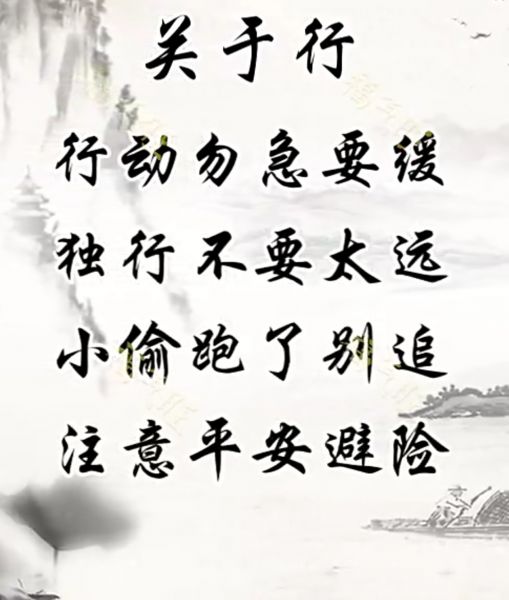 关于行
行动勿急要缓
独行不要太远
小偷跑了别追
注意平安避险